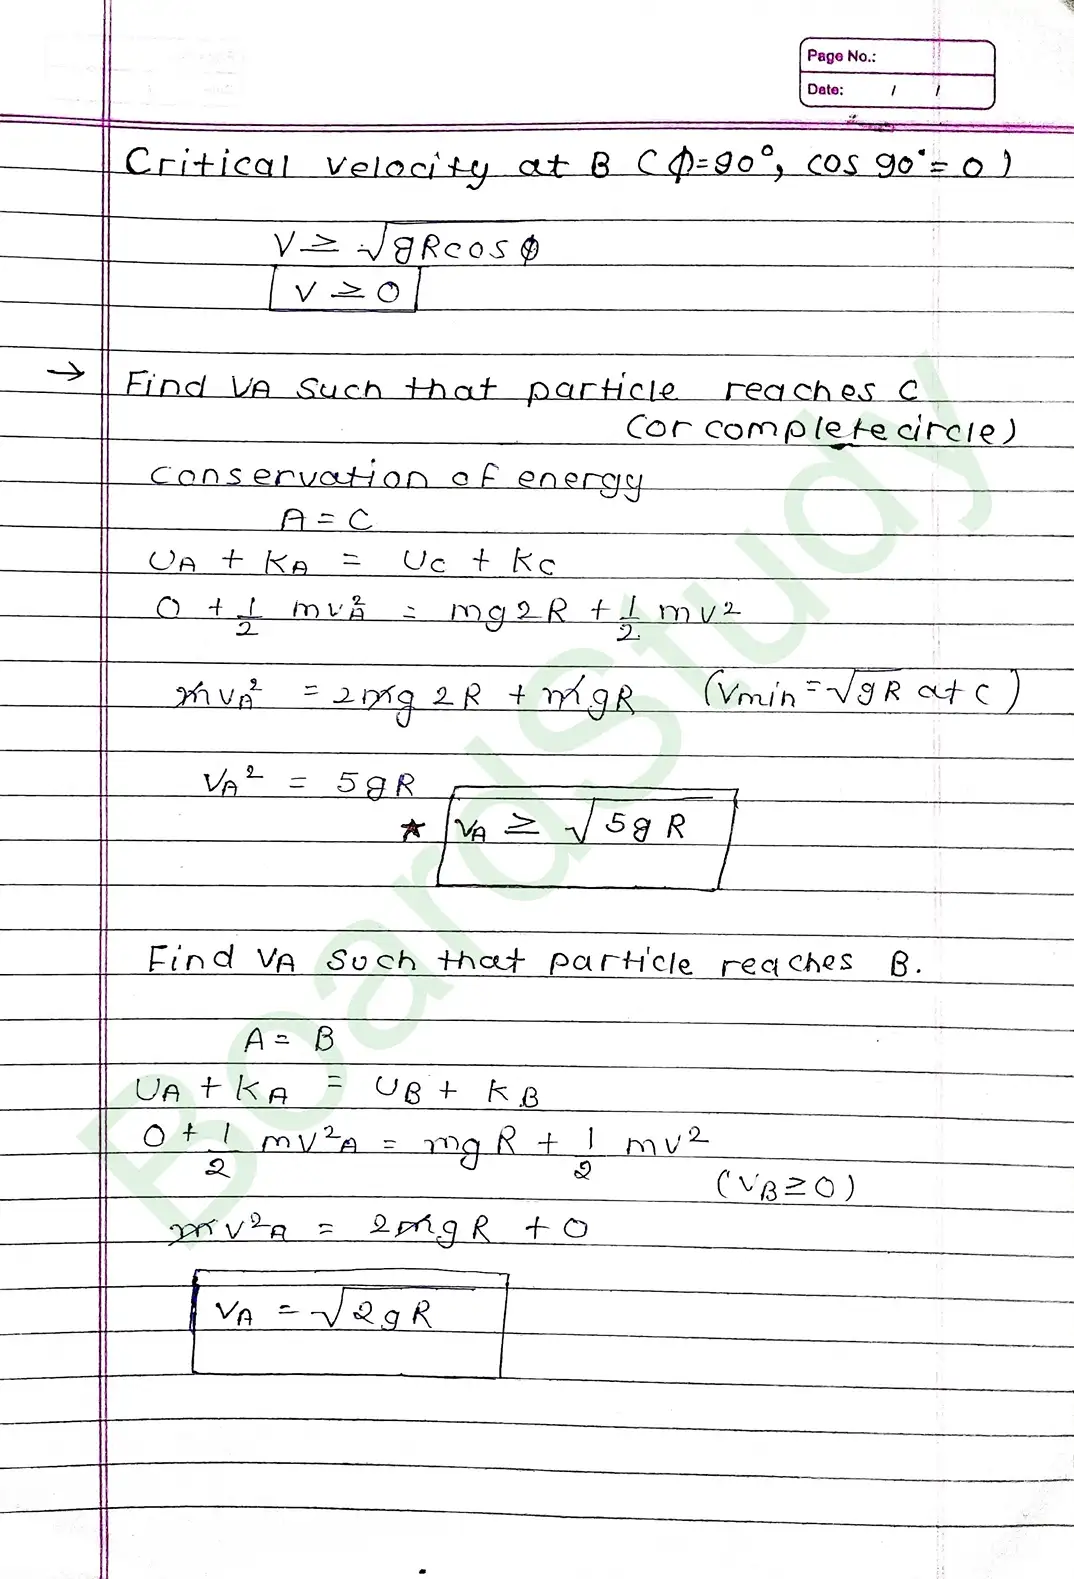 Page No.:
Date: / /
Critical velocity at B (ϕ=90°, cos 90°=0)
V ≥ √gRcos ϕ
V ≥ 0
→ Find VA such that particle reaches C
(or complete circle)
conservation of energy
A = C
UA + KA = UC + KC
0 + 1/2 mvA² = mg2R + 1/2 mv²
mvA² = 2mg 2R + mgR (Vmin = √gR at C)
VA² = 5gR
★ VA ≥ √5gR
Find VA such that particle reaches B.
A = B
UA + KA = UB + KB
0 + 1/2 mv²A = mgR + 1/2 mv²
(VB ≥ 0)
mv²A = 2mgR + 0
VA = √2gR
BoardStudy